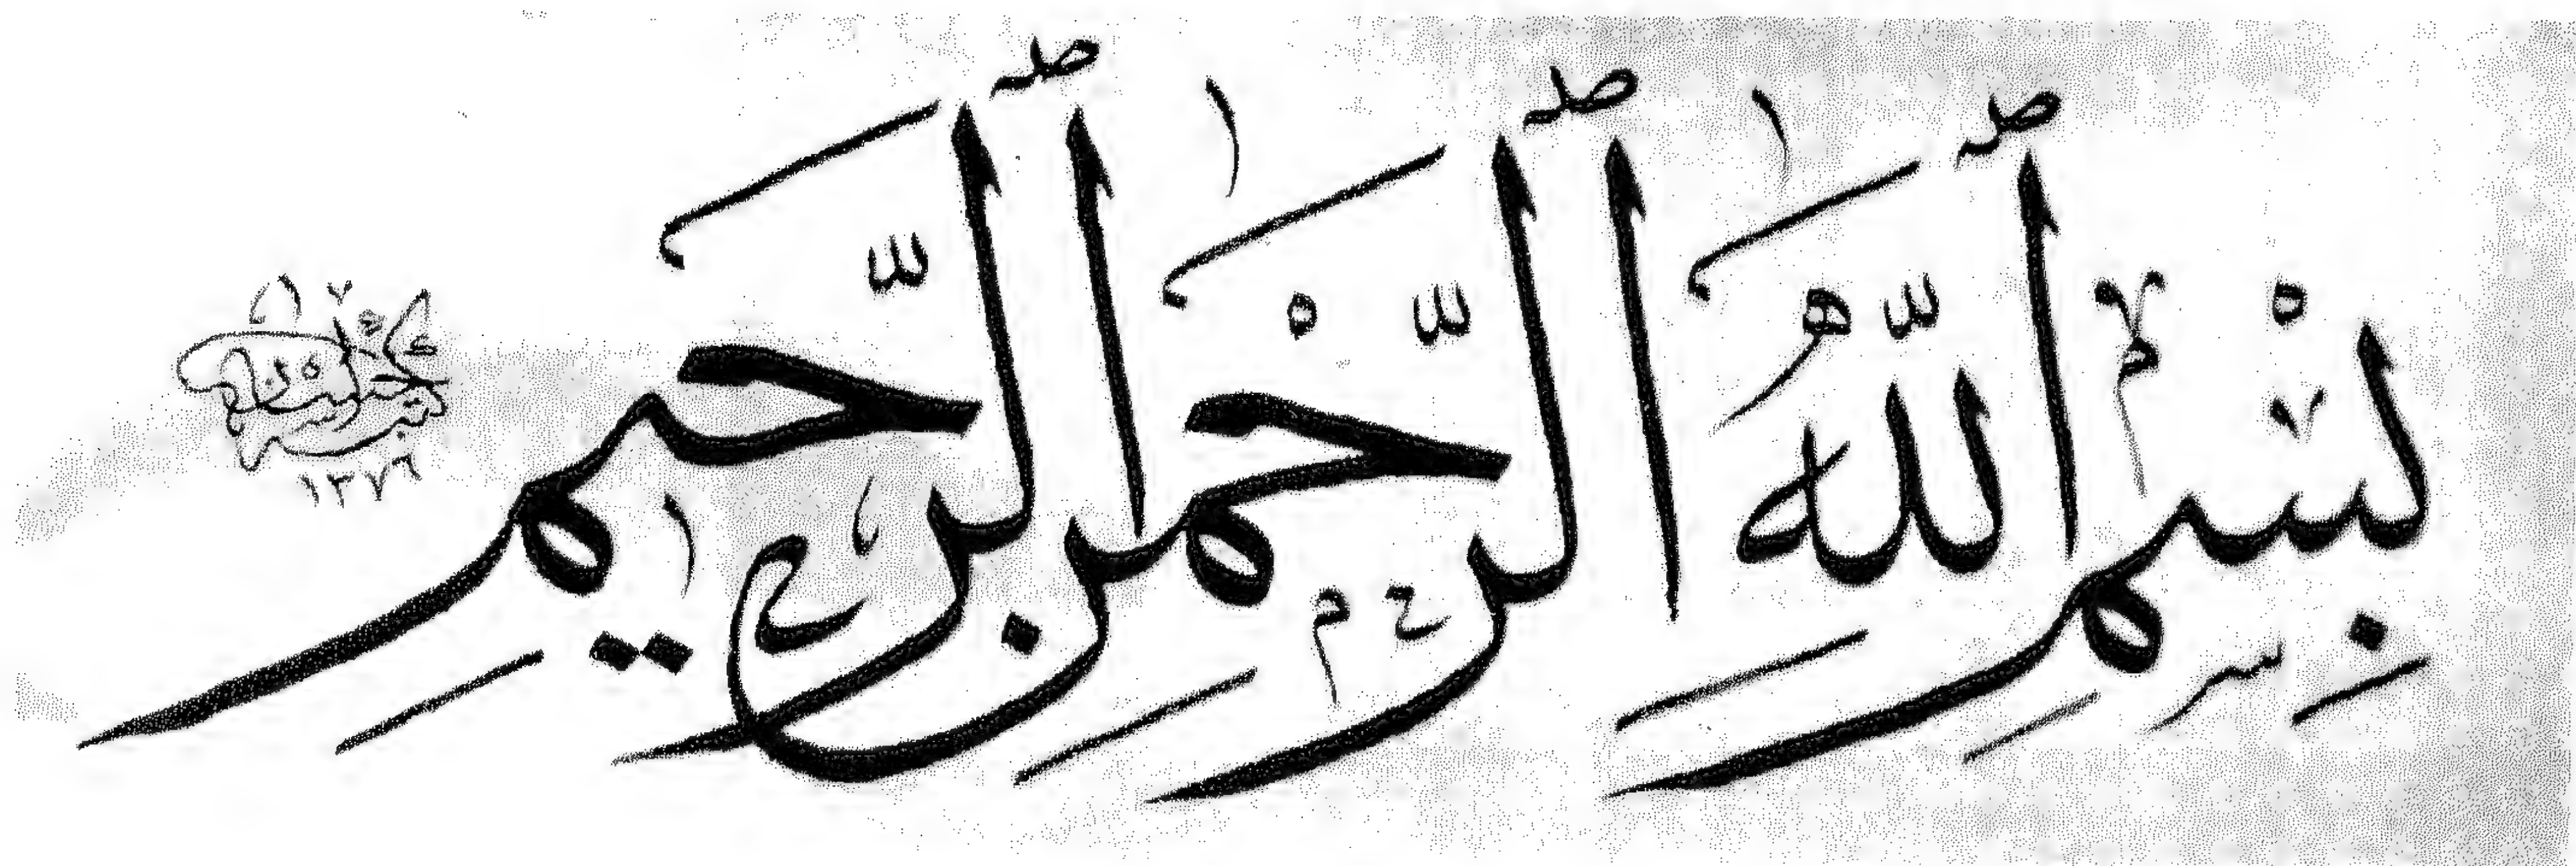 بِسْمِ ٱللَّهِ ٱلرَّحْمَٰنِ ٱلرَّحِيمِ
١٣٧٩